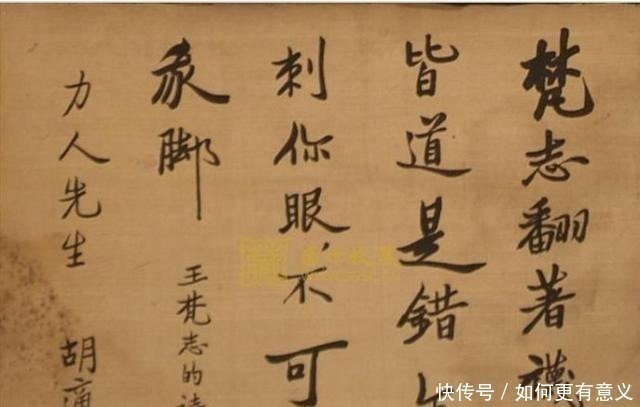 梵志翻著襪
皆道是錯
刺你眼，不可
我脚
王梵志的詩
力人先生 胡適
快传号 / 如何更有意义